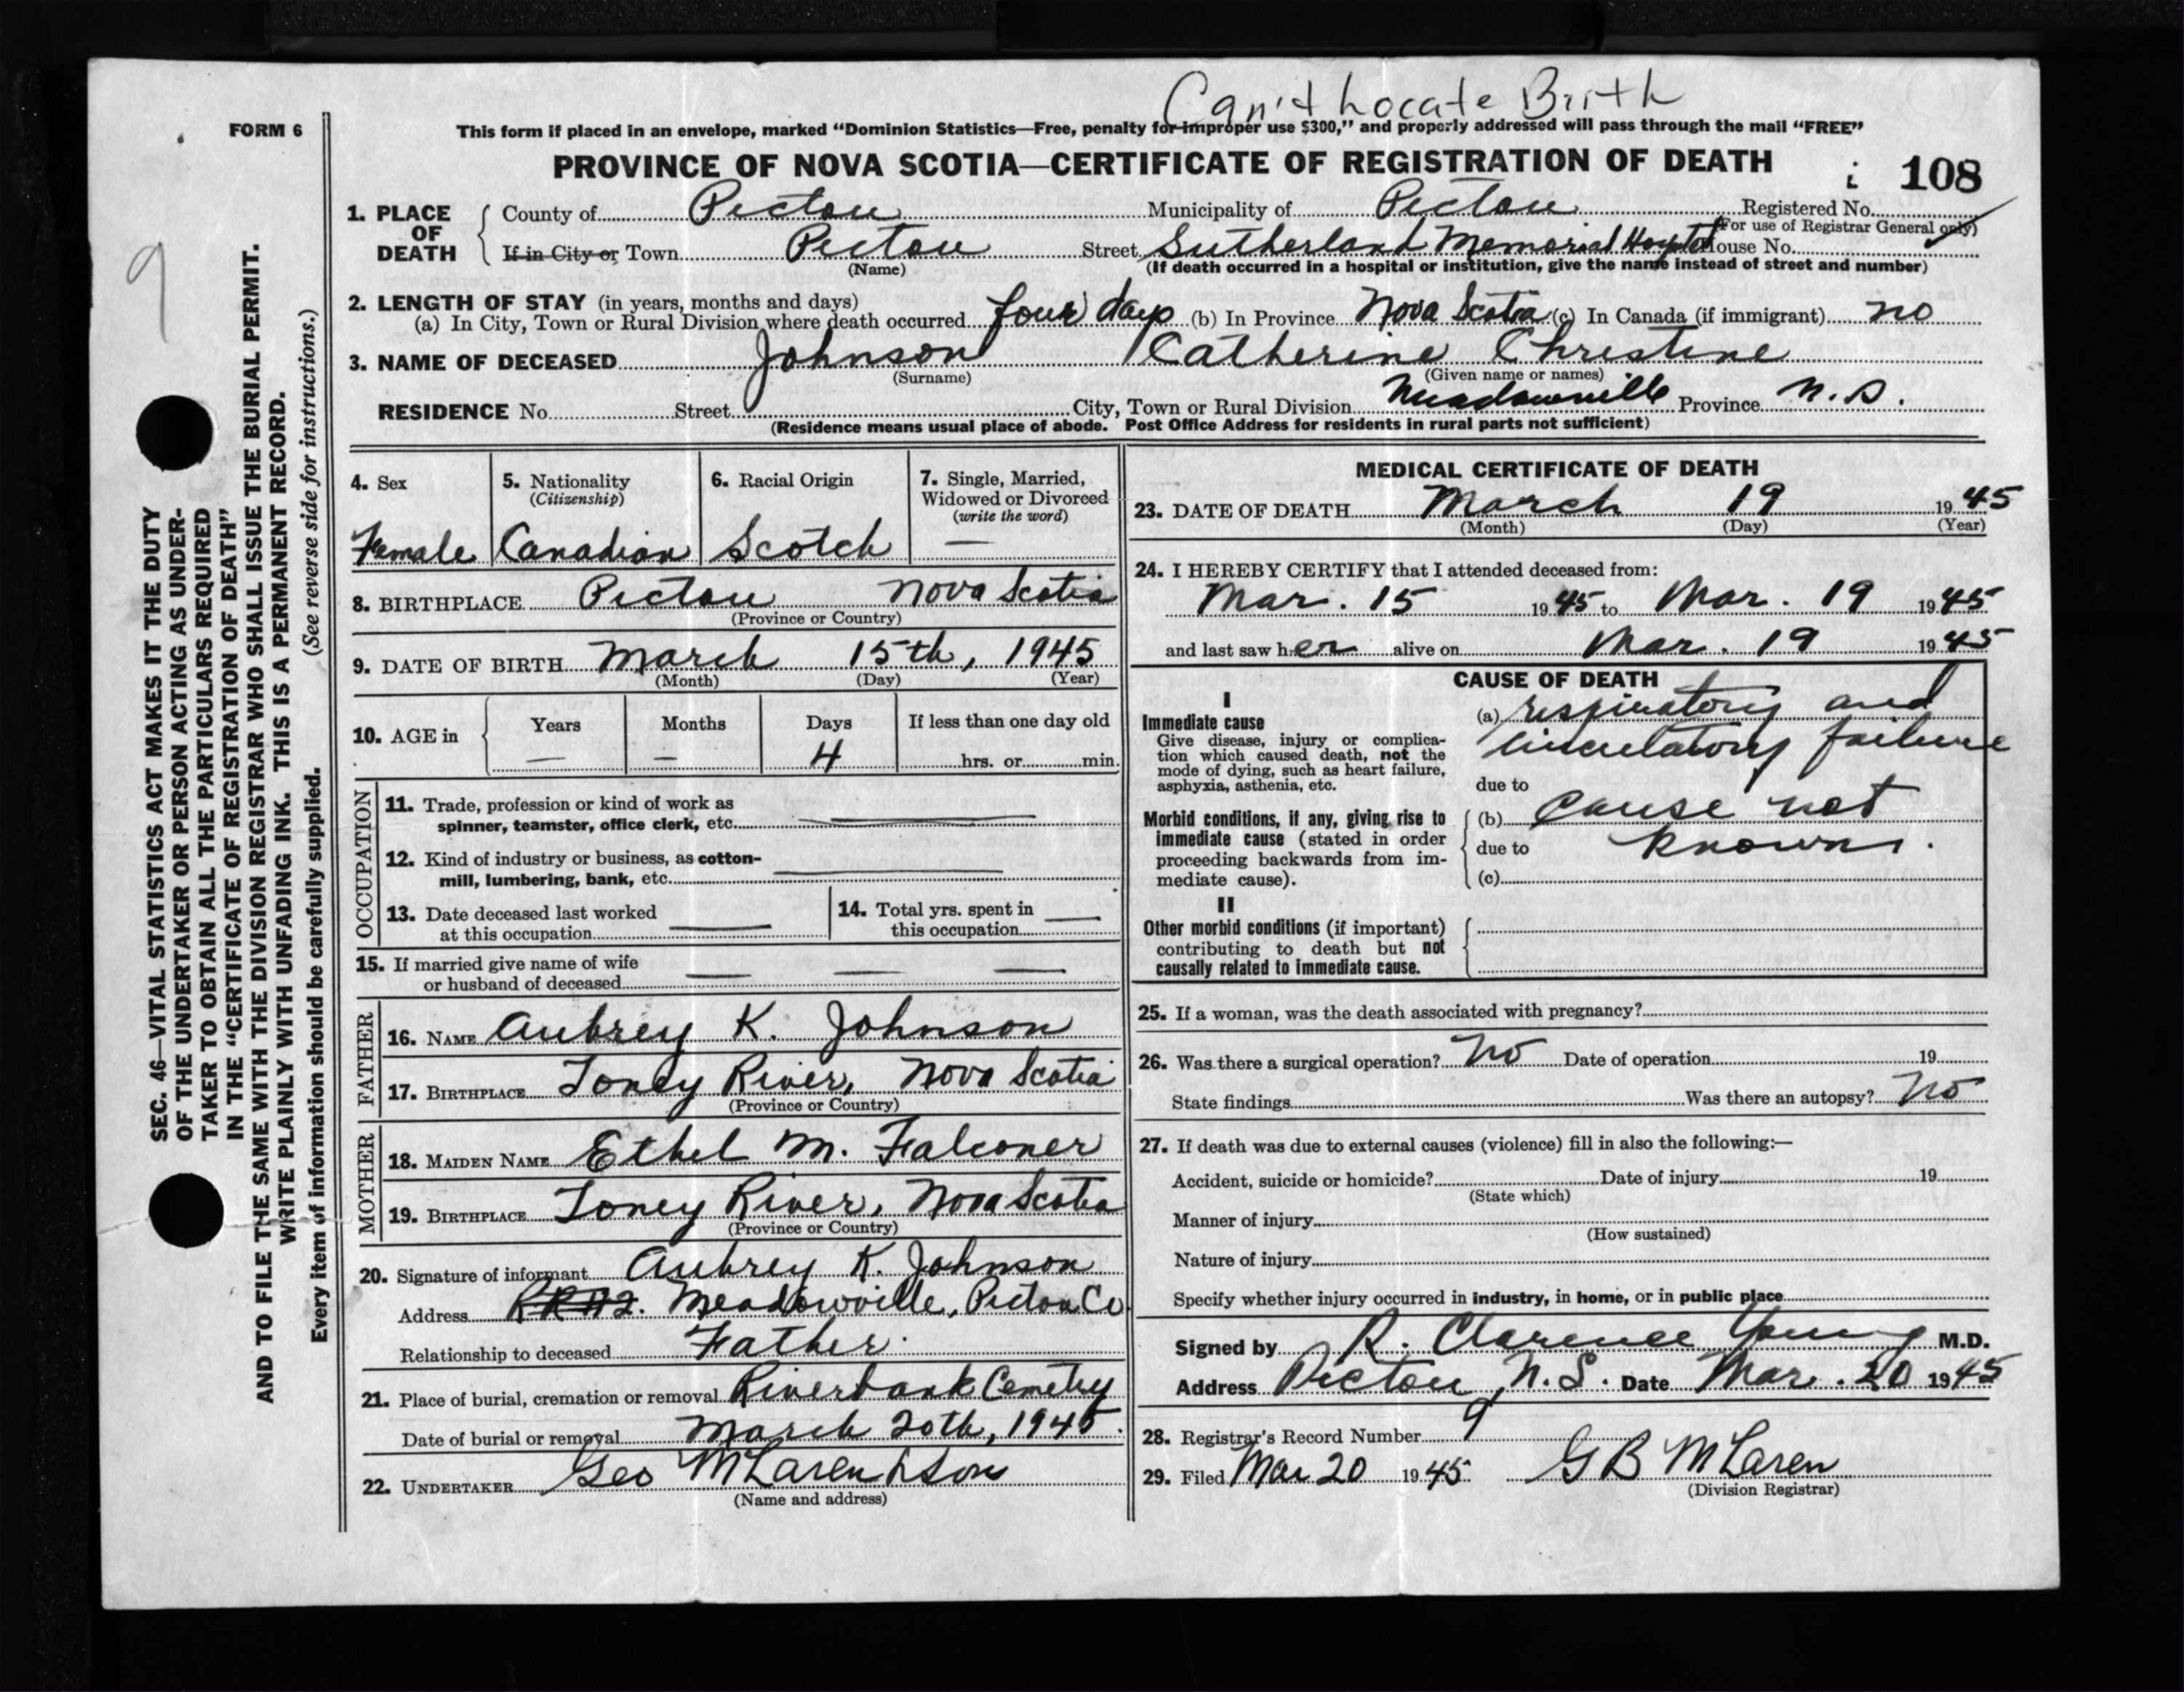 Can't Locate Birth
FORM 6
This form if placed in an envelope, marked “Dominion Statistics—Free, penalty for improper use $300,” and properly addressed will pass through the mail “FREE”
PROVINCE OF NOVA SCOTIA—CERTIFICATE OF REGISTRATION OF DEATH
i 108
9
SEC. 46—VITAL STATISTICS ACT MAKES IT THE DUTY
OF THE UNDERTAKER OR PERSON ACTING AS UNDER-
TAKER TO OBTAIN ALL THE PARTICULARS REQUIRED
IN THE “CERTIFICATE OF REGISTRATION OF DEATH”
AND TO FILE THE SAME WITH THE DIVISION REGISTRAR WHO SHALL ISSUE THE BURIAL PERMIT.
WRITE PLAINLY WITH UNFADING INK. THIS IS A PERMANENT RECORD.
Every item of information should be carefully supplied. (See reverse side for instructions.)
1. PLACE OF DEATH
County of Pictou Municipality of Pictou Registered No.
(For use of Registrar General only)
If in City or Town Pictou Street Sutherland Memorial Hospital House No.
(Name) (If death occurred in a hospital or institution, give the name instead of street and number)
2. LENGTH OF STAY (in years, months and days)
(a) In City, Town or Rural Division where death occurred four days (b) In Province Nova Scotia (c) In Canada (if immigrant) no
3. NAME OF DECEASED Johnson / Catherine Christine
(Surname) (Given name or names)
RESIDENCE No. Street City, Town or Rural Division Meadowville Province N.S.
(Residence means usual place of abode. Post Office Address for residents in rural parts not sufficient)
4. Sex
Female
5. Nationality
(Citizenship)
Canadian
6. Racial Origin
Scotch
7. Single, Married,
Widowed or Divorced
(write the word)
—
8. BIRTHPLACE Pictou Nova Scotia
(Province or Country)
9. DATE OF BIRTH March 15th, 1945
(Month) (Day) (Year)
10. AGE in
Years Months Days If less than one day old
— — 4 hrs. or min.
OCCUPATION
11. Trade, profession or kind of work as
spinner, teamster, office clerk, etc.
12. Kind of industry or business, as cotton-
mill, lumbering, bank, etc.
13. Date deceased last worked
at this occupation
14. Total yrs. spent in
this occupation
15. If married give name of wife
or husband of deceased
FATHER
16. NAME Aubrey K. Johnson
17. BIRTHPLACE Toney River, Nova Scotia
(Province or Country)
MOTHER
18. MAIDEN NAME Ethel M. Falconer
19. BIRTHPLACE Toney River, Nova Scotia
(Province or Country)
20. Signature of informant Aubrey K. Johnson
Address RR#2. Meadowville, Pictou Co
Relationship to deceased Father.
21. Place of burial, cremation or removal Riverbank Cemetry
Date of burial or removal March 20th, 1945.
22. UNDERTAKER Geo McLaren & Son
(Name and address)
MEDICAL CERTIFICATE OF DEATH
23. DATE OF DEATH March 19 1945
(Month) (Day) (Year)
24. I HEREBY CERTIFY that I attended deceased from:
Mar. 15 1945 to Mar. 19 1945
and last saw her alive on Mar. 19 1945
CAUSE OF DEATH
I
Immediate cause
Give disease, injury or complica-
tion which caused death, not the
mode of dying, such as heart failure,
asphyxia, asthenia, etc.
(a) respiratory and
circulatory failure
due to
Morbid conditions, if any, giving rise to
immediate cause (stated in order
proceeding backwards from im-
mediate cause).
(b) cause not
due to known.
(c)
II
Other morbid conditions (if important)
contributing to death but not
causally related to immediate cause.
25. If a woman, was the death associated with pregnancy?
26. Was there a surgical operation? No Date of operation 19
State findings Was there an autopsy? No
27. If death was due to external causes (violence) fill in also the following:—
Accident, suicide or homicide? Date of injury 19
(State which)
Manner of injury
(How sustained)
Nature of injury
Specify whether injury occurred in industry, in home, or in public place
Signed by R. Clarence Young M.D.
Address Pictou, N.S. Date Mar. 20 1945
28. Registrar's Record Number 9
29. Filed Mar 20 1945 G B McLaren
(Division Registrar)